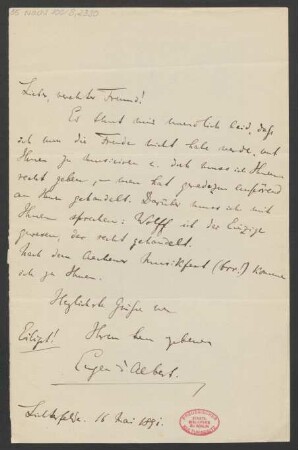 Lieber, verehrter Freund!
Es thut mir unendlich leid, daß
ich nun die Freude nicht habe werde, mit
Ihnen zu musiciren u. doch muss ich Ihnen
recht geben, – man hat geradezu empörend
an Ihnen gehandelt. Darüber muss ich mit
Ihnen sprechen: Wolff ist der Einzige
gewesen, der recht gehandelt.
Nach dem Aachener Musikfest (bro!) komme
ich zu Ihnen.
Herzlichste Grüße von
Eiligst! Ihrem treu ergebenen
Eugen d'Albert.
Lichterfelde, 16 Mai 1891.